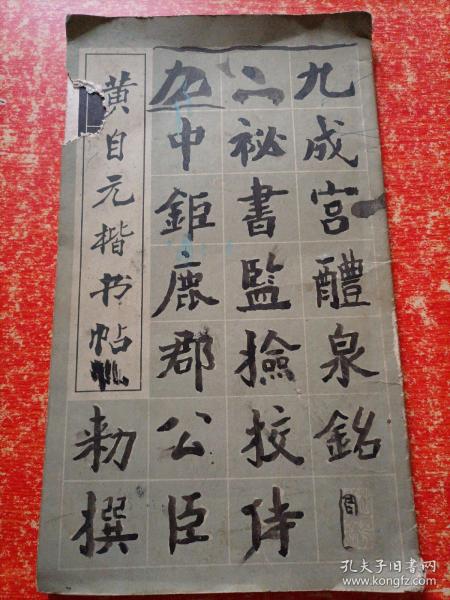 九成宮醴泉銘
二祕書監撿挍侍
九中鉅鹿郡公臣
勅撰
黄自元楷书帖
孔夫子旧书网
www.kongfz.com